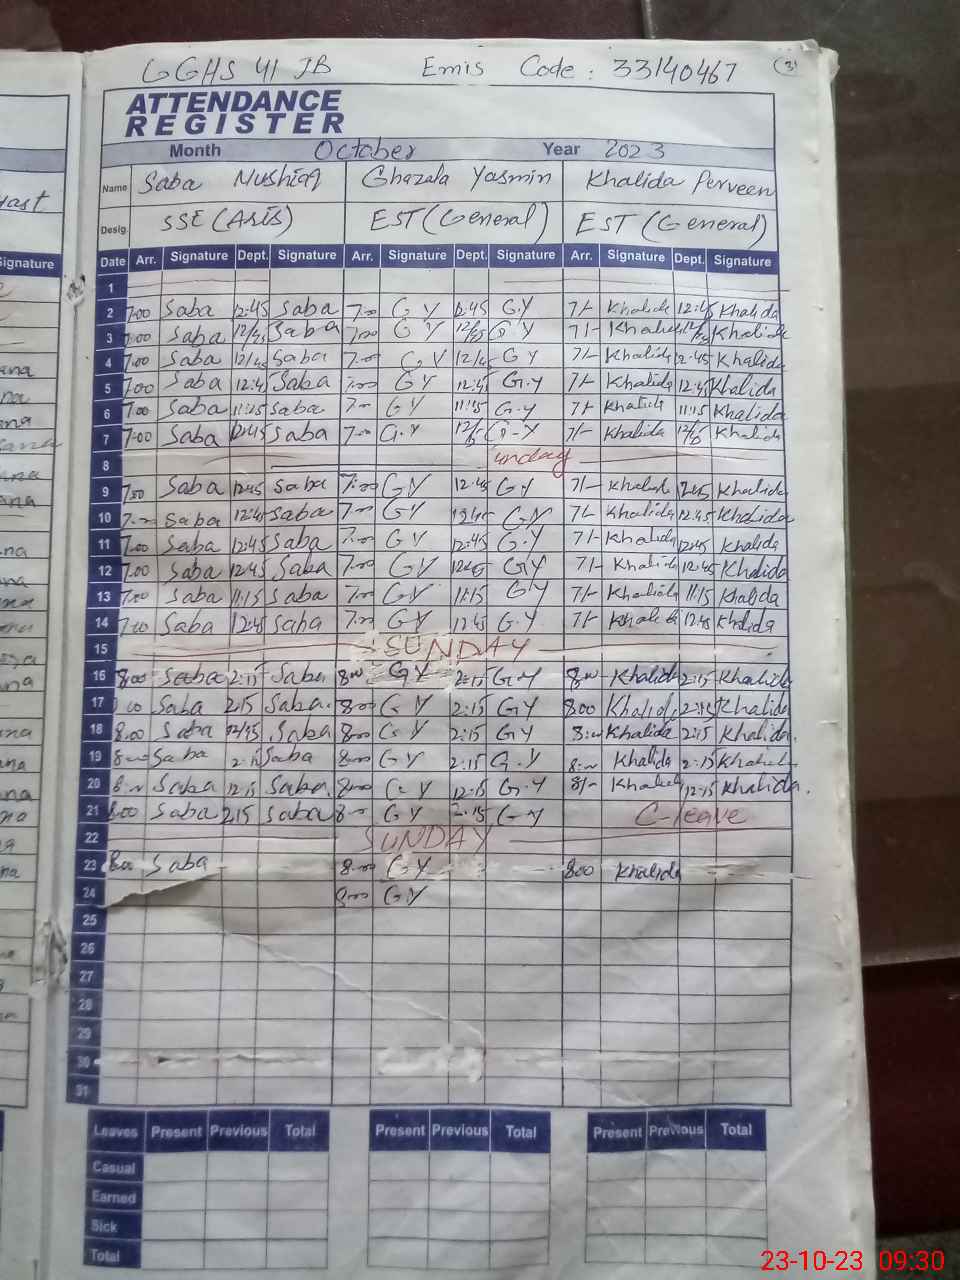 GGHS 41 JB Emis Code : 33140467 (3)
ATTENDANCE
REGISTER
Month October Year 2023
Name Saba Mushtaq Ghazala Yasmin Khalida Perveen
Desig. SSE (Arts) EST (General) EST (General)
Date Arr. Signature Dept. Signature Arr. Signature Dept. Signature Arr. Signature Dept. Signature
1
2 7:00 Saba 12:45 Saba 7:00 G Y 12:45 G.Y 7/- Khalida 12:45 Khalida
3 7:00 Saba 12/45 Saba 7:00 G Y 12/45 G Y 7/- Khalida 12/45 Khalida
4 7:00 Saba 12/45 Saba 7:00 G Y 12/45 G Y 7/- Khalida 12:45 Khalida
5 7:00 Saba 12:45 Saba 7:00 G Y 12:45 G.Y 7/- Khalida 12:45 Khalida
6 7:00 Saba 11:15 Saba 7:00 G Y 11:15 G.Y 7/- Khalida 11:15 Khalida
7 7:00 Saba 12:45 Saba 7:00 G.Y G.Y 7/- Khalida Khalida
8 Sunday
9 7:00 Saba 12:45 Saba 7:00 G Y 12:45 G Y 7/- Khalida 12:45 Khalida
10 7:00 Saba 12:45 Saba 7:00 G Y 12:45 G Y 7/- Khalida 12:45 Khalida
11 7:00 Saba 12:45 Saba 7:00 G Y 12:45 G.Y 7/- Khalida 12:45 Khalida
12 7:00 Saba 12:45 Saba 7:00 G Y 12:45 G Y 7/- Khalida 12:45 Khalida
13 7:00 Saba 11:15 Saba 7:00 G Y 11:15 G Y 7/- Khalida 11:15 Khalida
14 7:00 Saba 12:45 Saba 7:00 G Y 12:45 G.Y 7/- Khalida 12:45 Khalida
15 SUNDAY
16 8:00 Saba 2:15 Saba 8:00 G Y 2:15 G.Y 8:00 Khalida 2:15 Khalida
17 Saba 2:15 Saba. 8:00 G Y 2:15 G Y 8:00 Khalida 2:15 Khalida
18 8:00 Saba Saba 8:00 G Y 2:15 G Y 8:00 Khalida 2:15 Khalida.
19 8:00 Saba 2:15 Saba 8:00 G Y 2:15 G.Y 8:00 Khalida 2:15 Khalida
20 8:00 Saba 12:15 Saba. 8:00 G Y 12:15 G.Y 8/- Khalida 12:15 Khalida.
21 8:00 Saba 2:15 Saba 8:00 G Y 2:15 G Y C-leave
22 SUNDAY
23 8:00 Saba 8:00 G Y 8:00 Khalida
24 8:00 G Y
25
26
27
28
29
30
31
Leaves Present Previous Total Present Previous Total Present Previous Total
Casual
Earned
Sick
Total
23-10-23 09:30